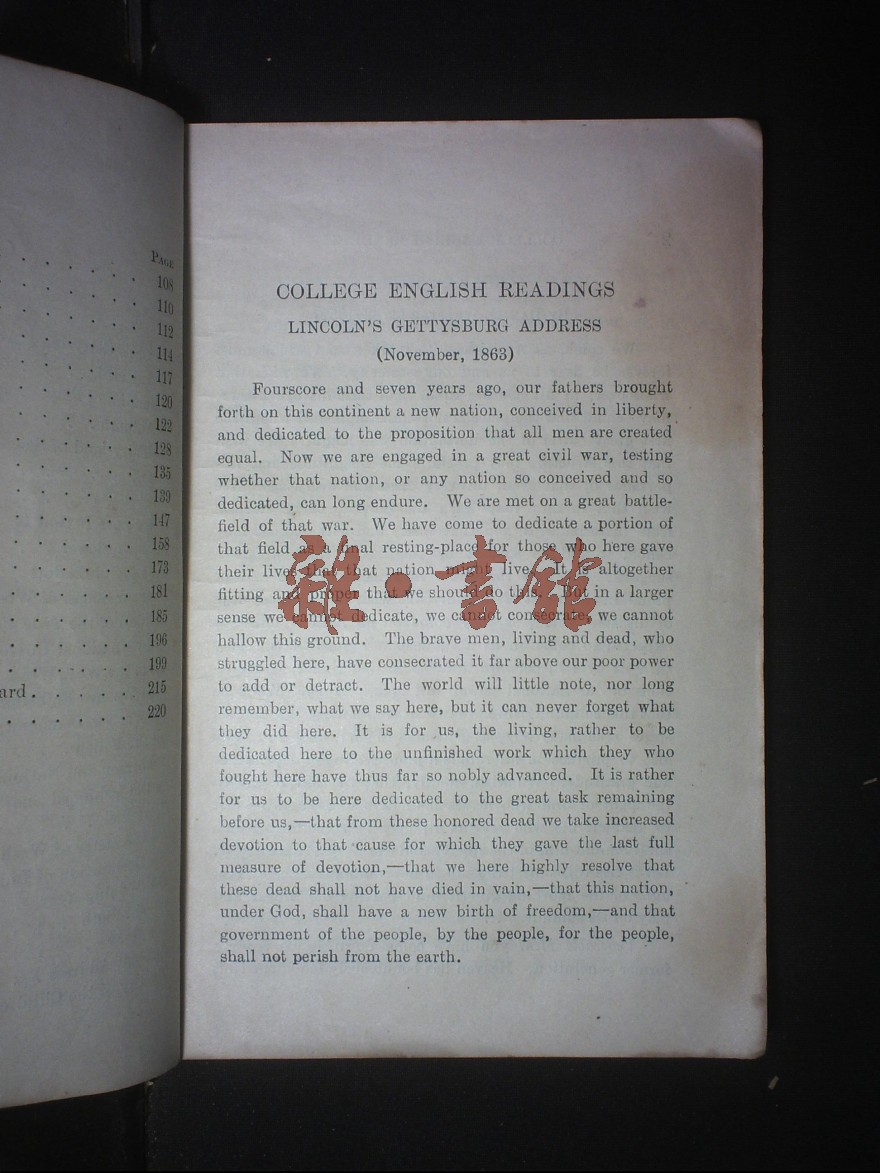 PAGE
108
110
112
114
117
120
122
128
135
139
147
158
173
181
185
196
199
ard . . . . . 215
220
COLLEGE ENGLISH READINGS
LINCOLN'S GETTYSBURG ADDRESS
(November, 1863)
Fourscore and seven years ago, our fathers brought
forth on this continent a new nation, conceived in liberty,
and dedicated to the proposition that all men are created
equal. Now we are engaged in a great civil war, testing
whether that nation, or any nation so conceived and so
dedicated, can long endure. We are met on a great battle-
field of that war. We have come to dedicate a portion of
that field as a final resting-place for those who here gave
their lives that that nation might live. It is altogether
fitting and proper that we should do this. But in a larger
sense we cannot dedicate, we cannot consecrate, we cannot
hallow this ground. The brave men, living and dead, who
struggled here, have consecrated it far above our poor power
to add or detract. The world will little note, nor long
remember, what we say here, but it can never forget what
they did here. It is for us, the living, rather to be
dedicated here to the unfinished work which they who
fought here have thus far so nobly advanced. It is rather
for us to be here dedicated to the great task remaining
before us,—that from these honored dead we take increased
devotion to that cause for which they gave the last full
measure of devotion,—that we here highly resolve that
these dead shall not have died in vain,—that this nation,
under God, shall have a new birth of freedom,—and that
government of the people, by the people, for the people,
shall not perish from the earth.
雜·書館